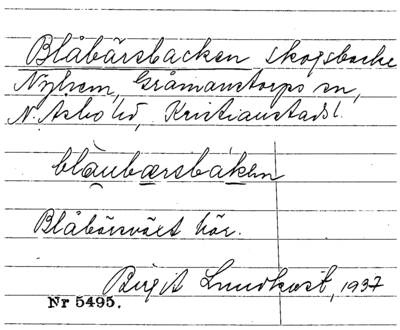 Blåbärsbacken, skogsbacke
Nyhem, Gråmanstorps sn,
N. Åsbo hd, Kristianstads l.
blaubærsbaken
Blåbärsväxt här.
Birgit Lundkvist, 1937
Nr 5495.